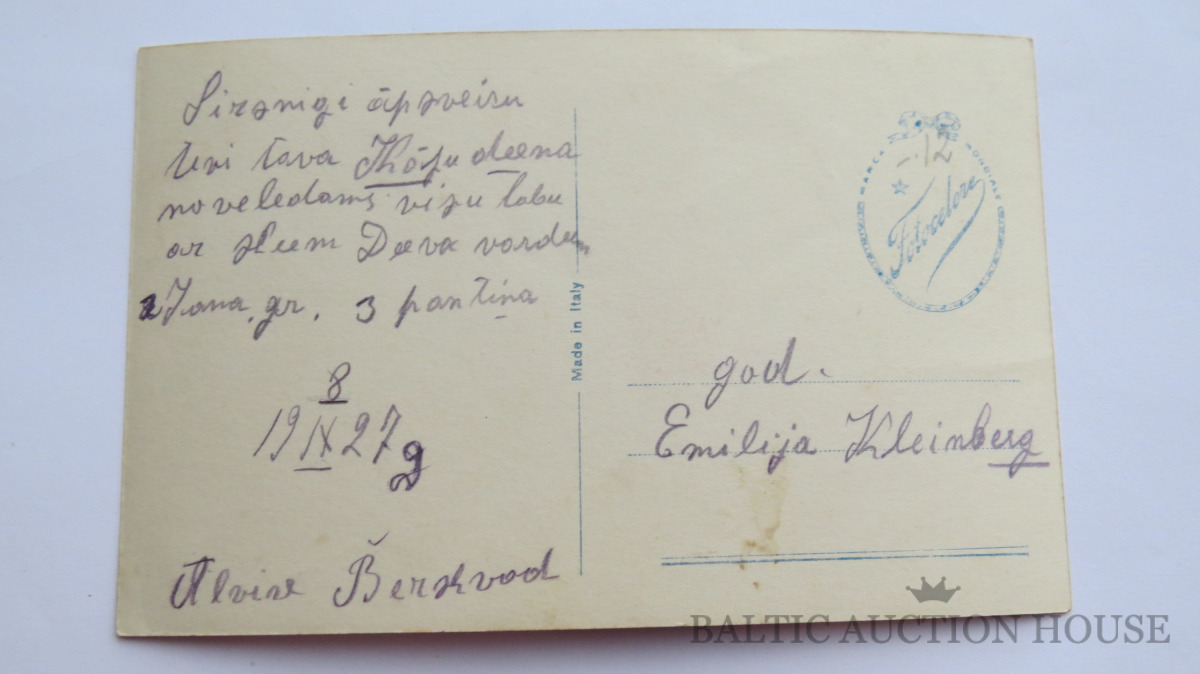 Sirsnigi āpsveizu
tevi tava Kāzu deena
noveledams visu labu
ar sheem Deeva vardeem
1 Jana, gr. 3 pantiņa
8
19 IX 27 g
Alvine Berskvod
Made in Italy
-.12
MARCA MONDIALE
Fotocelere
god.
Emilija Kleinberg
BALTIC AUCTION HOUSE